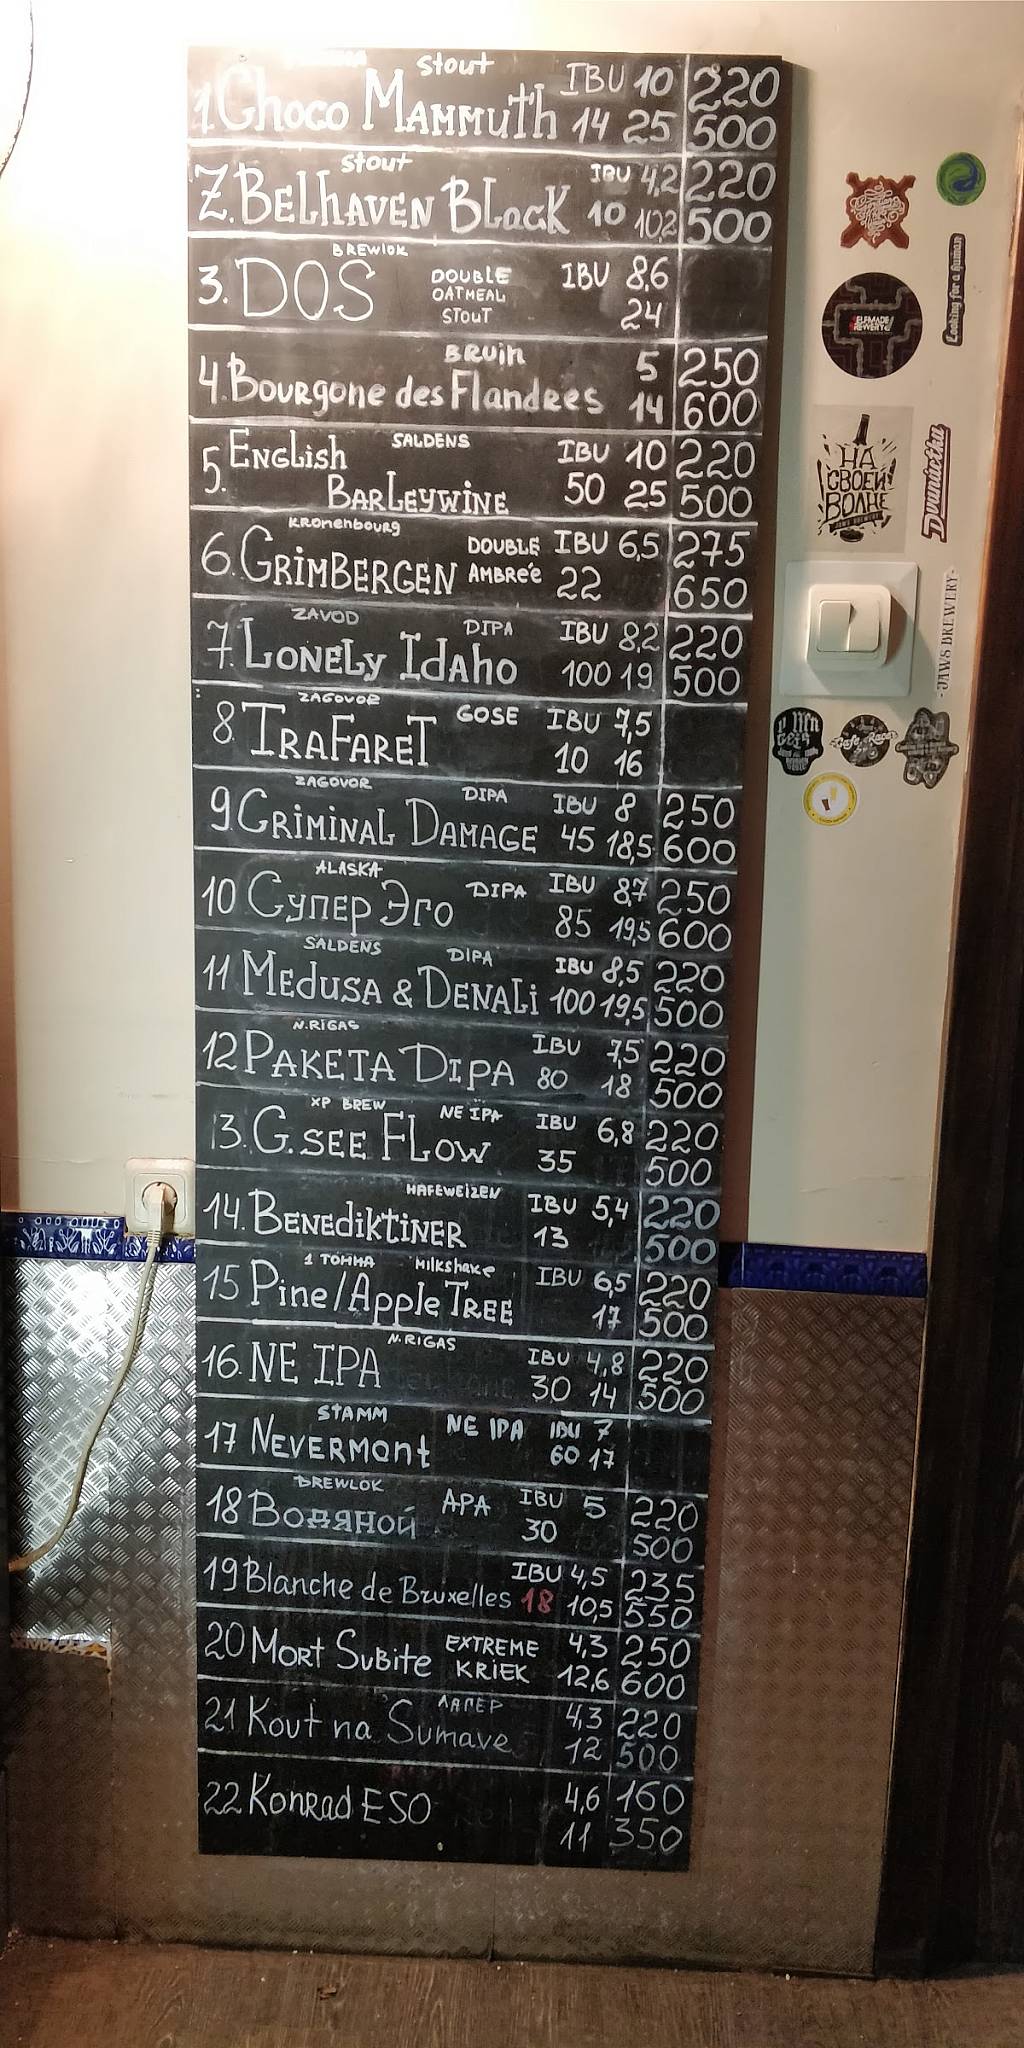 Stout IBU 10 220
1 Choco Mammuth 14 25 500
Stout IBU 4,2 220
2. Belhaven Black 10 10,2 500
BREWLOK
3. DOS DOUBLE OATMEAL STOUT IBU 8,6
24
BRUIN 5 250
4. Bourgone des Flandres 14 600
SALDENS
5. English IBU 10 220
Barleywine 50 25 500
Kronenbourg
6. GRIMBERGEN DOUBLE AMBRéE IBU 6,5 275
22 650
ZAVOD DIPA IBU 8,2 220
7. Lonely Idaho 100 19 500
ZAGOVOR
8. TRAFARET GOSE IBU 7,5
10 16
ZAGOVOR DIPA IBU 8 250
9. CRIMINAL DAMAGE 45 18,5 600
ALASKA
10 Супер Эго DIPA IBU 8,7 250
85 19,5 600
SALDENS DIPA IBU 8,5 220
11 Medusa & DENALi 100 19,5 500
N.RIGAS IBU 7,5 220
12 PAKETA DIPA 80 18 500
XP BREW NE IPA IBU 6,8 220
13. G.SEE FLOW 35 500
HAFEWEIZEN IBU 5,4 220
14. BENEdiktiNER 13 500
1 ТОННА Milkshake IBU 6,5 220
15 Pine/Apple TREE 17 500
N.RIGAS
16. NE IPA IBU 4,8 220
30 14 500
STAMM NE IPA IBU 7
17 NEVERMONT 60 17
BREWLOK
18 Водяной APA IBU 5 220
30 500
IBU 4,5 235
19 Blanche de Bruxelles 18 10,5 550
20 MORT SUBITE EXTREME KRIEK 4,3 250
12,6 600
ЛАГЕР
21 Kout na Sumave 4,3 220
12 500
22 Konrad ESO 4,6 160
11 350
Looking for a human
SELFMADE
BREWERY
НА
СВОЕЙ
ВОЛНЕ
JAWS BREWERY
-JAWS BREWERY-
Cafe Racer